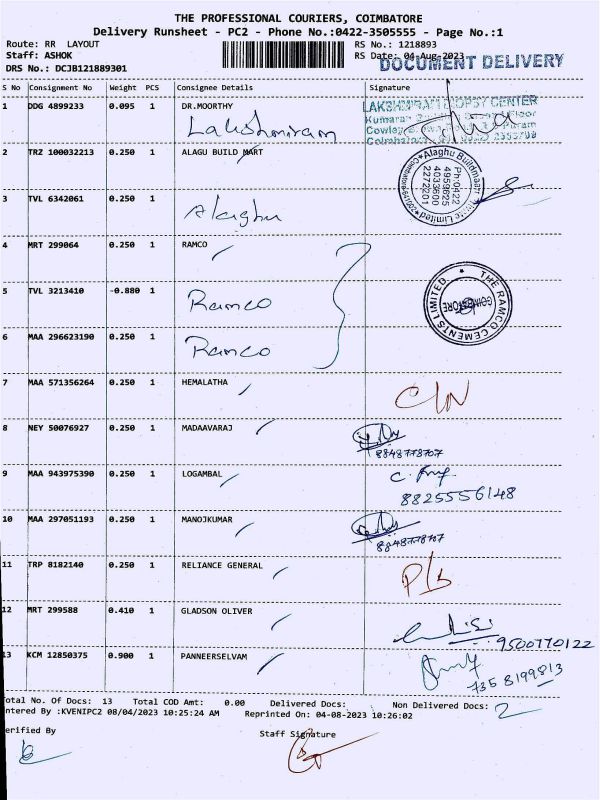 THE PROFESSIONAL COURIERS, COIMBATORE
Delivery Runsheet - PC2 - Phone No.:0422-3505555 - Page No.:1
Route: RR LAYOUT RS No.: 1218893
Staff: ASHOK RS Date: 04-Aug-2023
DRS No.: DCJB121889301 DOCUMENT DELIVERY
S No Consignment No Weight PCS Consignee Details Signature
1 DDG 4899233 0.095 1 DR.MOORTHY
Lakshmiram
2 TRZ 100032213 0.250 1 ALAGU BUILD MART
Ph:0422
4959625
4033600
2272201
3 TVL 6342061 0.250 1
Alaghu
4 MRT 299064 0.250 1 RAMCO
5 TVL 3213410 -0.880 1 Ramco
THE RAMCO CEMENTS LIMITED
COIMBATORE
6 MAA 296623190 0.250 1 Ramco
7 MAA 571356264 0.250 1 HEMALATHA
8 NEY 50076927 0.250 1 MADAAVARAJ
8848778707
9 MAA 943975390 0.250 1 LOGAMBAL
8825556148
10 MAA 297051193 0.250 1 MANOJKUMAR
8848778707
11 TRP 8182140 0.250 1 RELIANCE GENERAL
12 MRT 299588 0.410 1 GLADSON OLIVER
9500770122
13 KCM 12850375 0.900 1 PANNEERSELVAM
7358199813
otal No. Of Docs: 13 Total COD Amt: 0.00 Delivered Docs: Non Delivered Docs: 2
ntered By :KVENIPC2 08/04/2023 10:25:24 AM Reprinted On: 04-08-2023 10:26:02
erified By Staff Signature